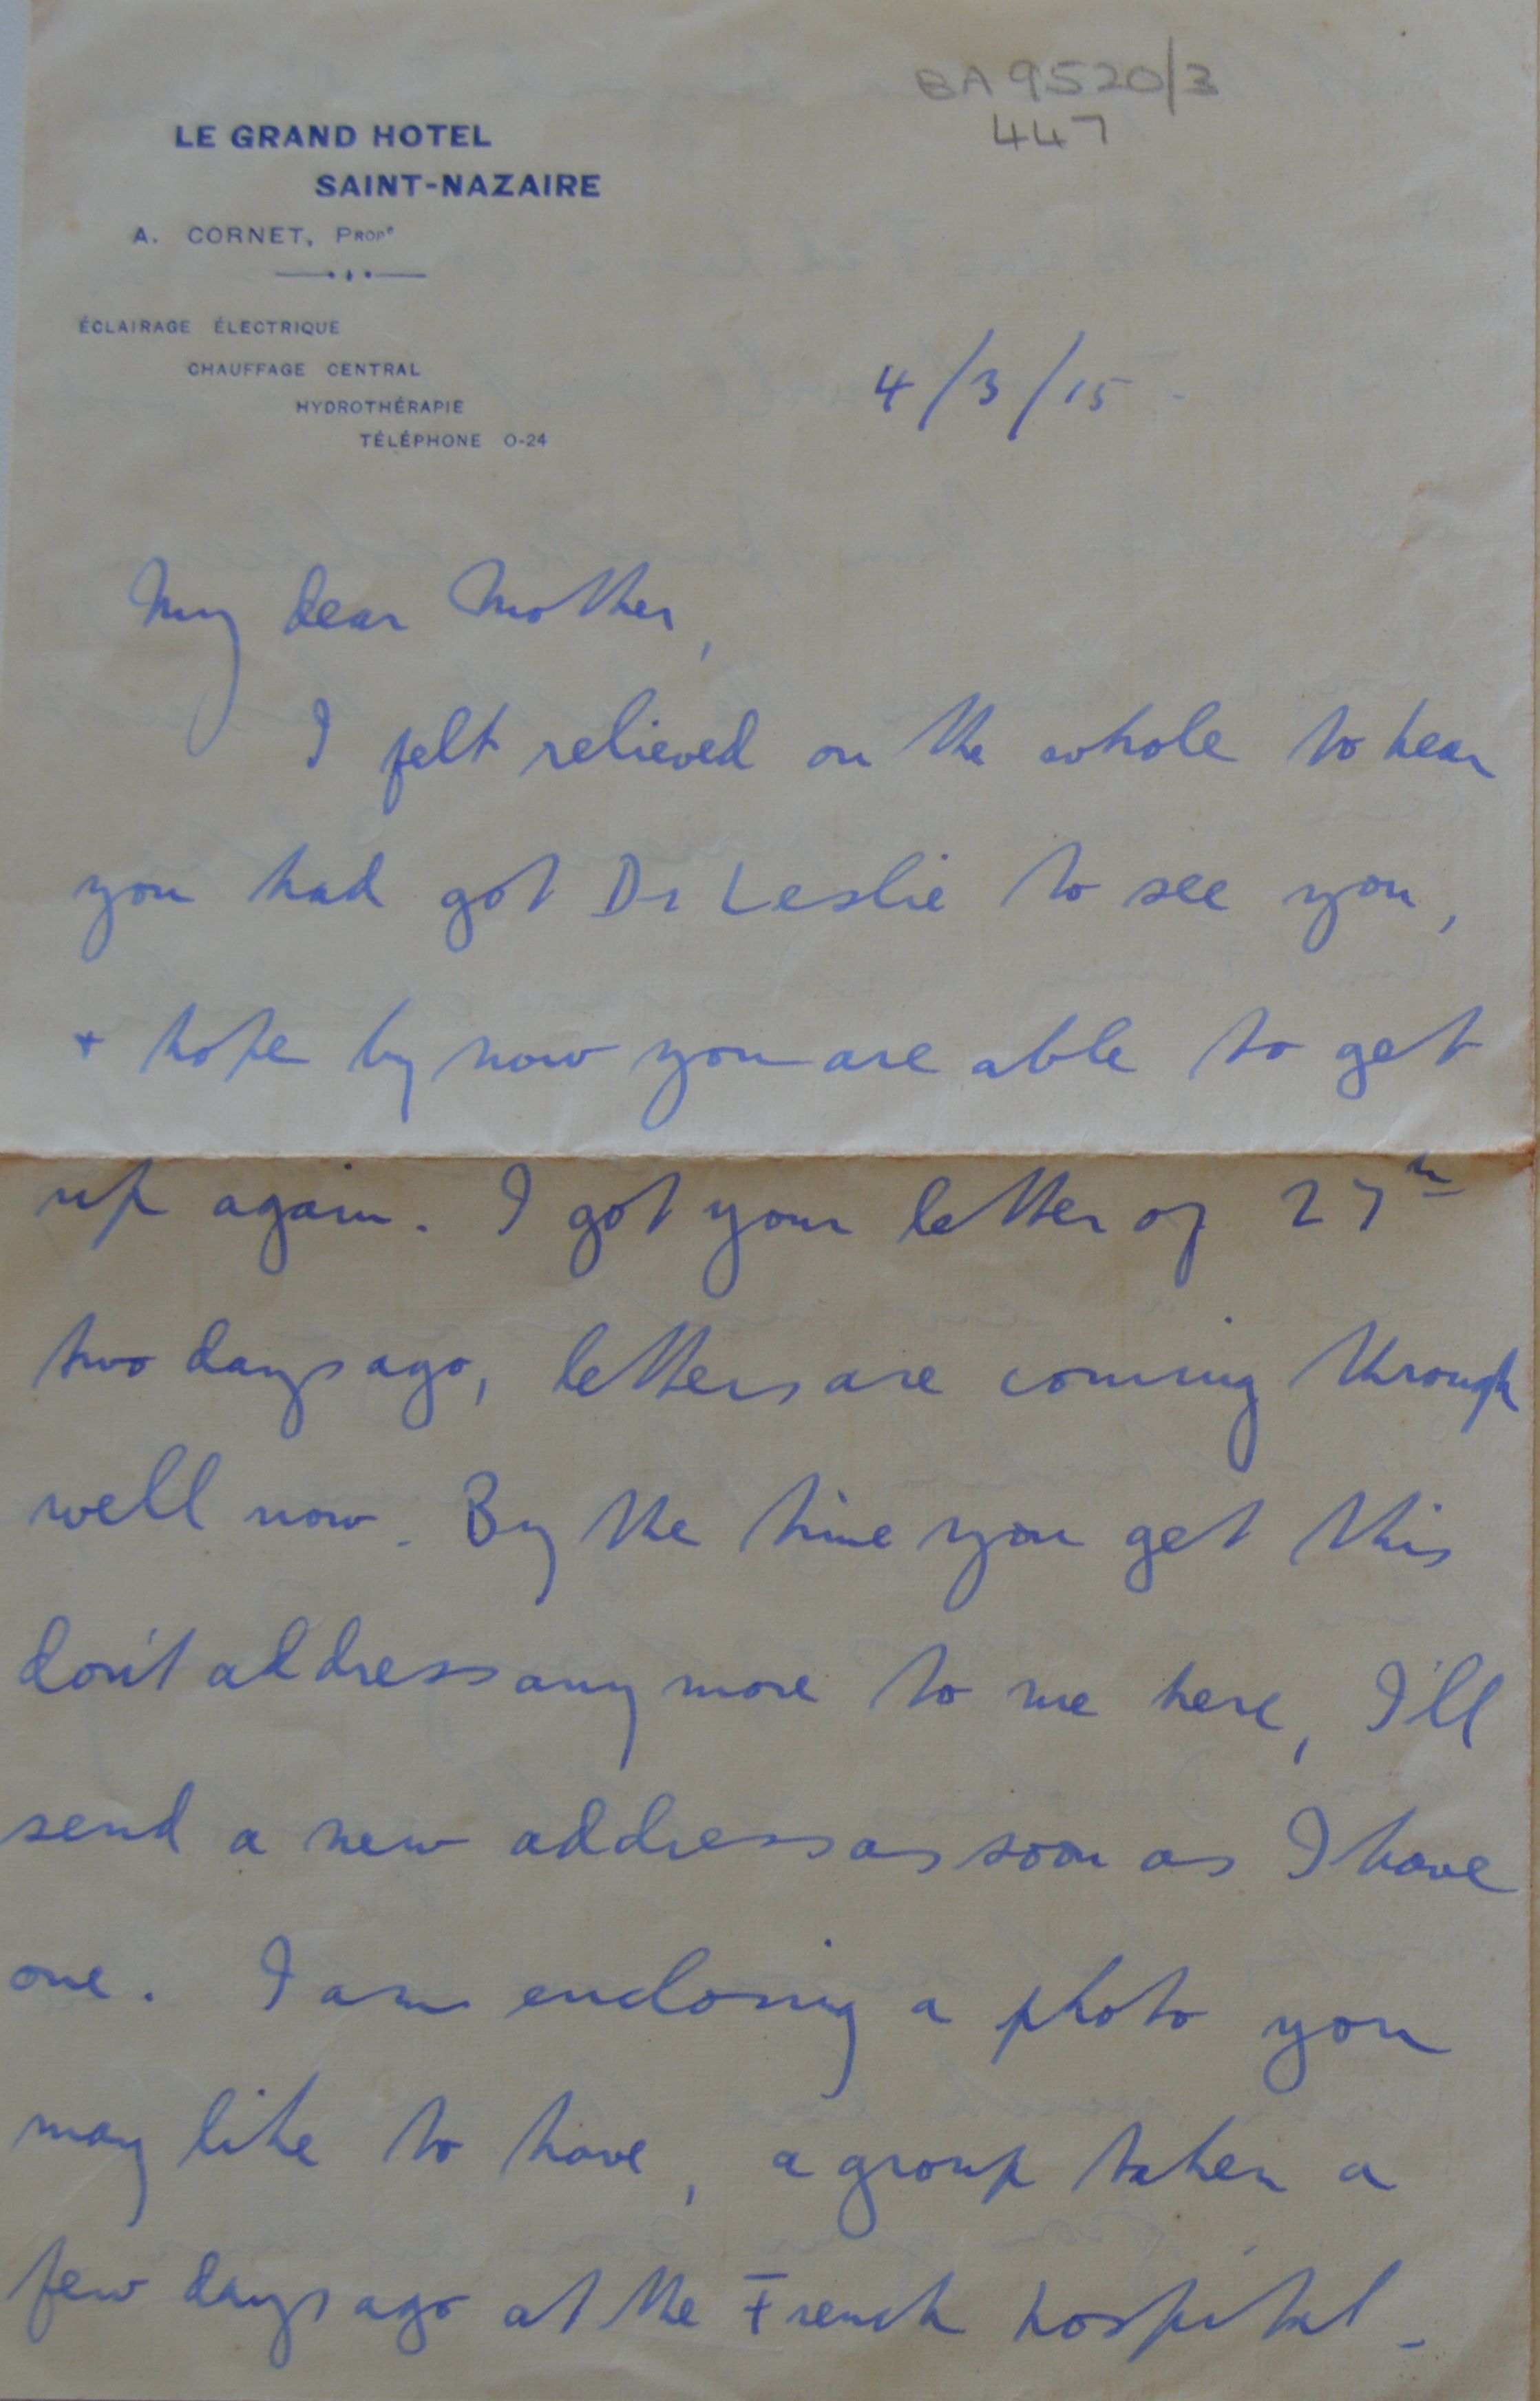 BA 9520/3
447
LE GRAND HOTEL
SAINT-NAZAIRE
A. CORNET, Propᵉ
ÉCLAIRAGE ÉLECTRIQUE
CHAUFFAGE CENTRAL
HYDROTHÉRAPIE
TÉLÉPHONE 0-24
4/3/15.
My dear Mother,
I felt relieved on the whole to hear
you had got Dr Leslie to see you,
+ hope by now you are able to get
up again. I got your letter of 27th
two days ago, letters are coming through
well now. By the time you get this
don't address any more to me here, I'll
send a new address as soon as I have
one. I am enclosing a photo you
may like to have, a group taken a
few days ago at the French hospital.